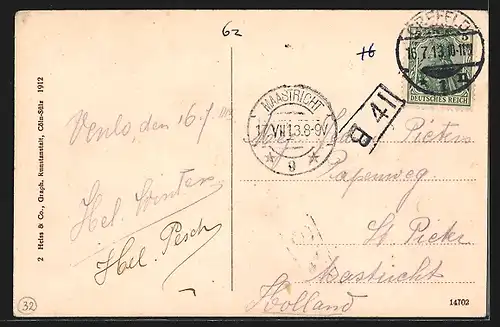 62
+6
CREFELD
16.7.13.10-11V
DEUTSCHES REICH
MAASTRICHT
17.VII.13.8-9V
9
B 41
Pieters
Papenweg
St Pieter
Mastricht
Holland
Venlo, den 16.7
Hel. Winters
Hel. Pesch
2 Heiss & Co., Graph. Kunstanstalt, Cöln-Sülz 1912
32
14702